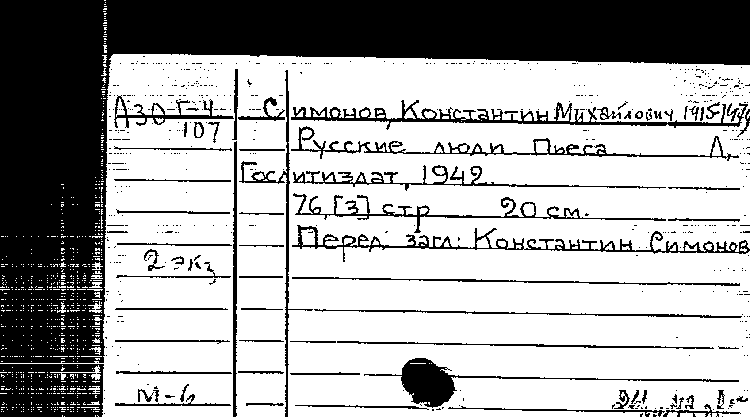 А30 Г-4 Симонов, Константин Михайлович, 1915-1979
107
Русские люди Пьеса Л.,
Гослитиздат, 1942.
76, [3] стр 20 см.
Перед загл: Константин Симонов
2 экз
М-б